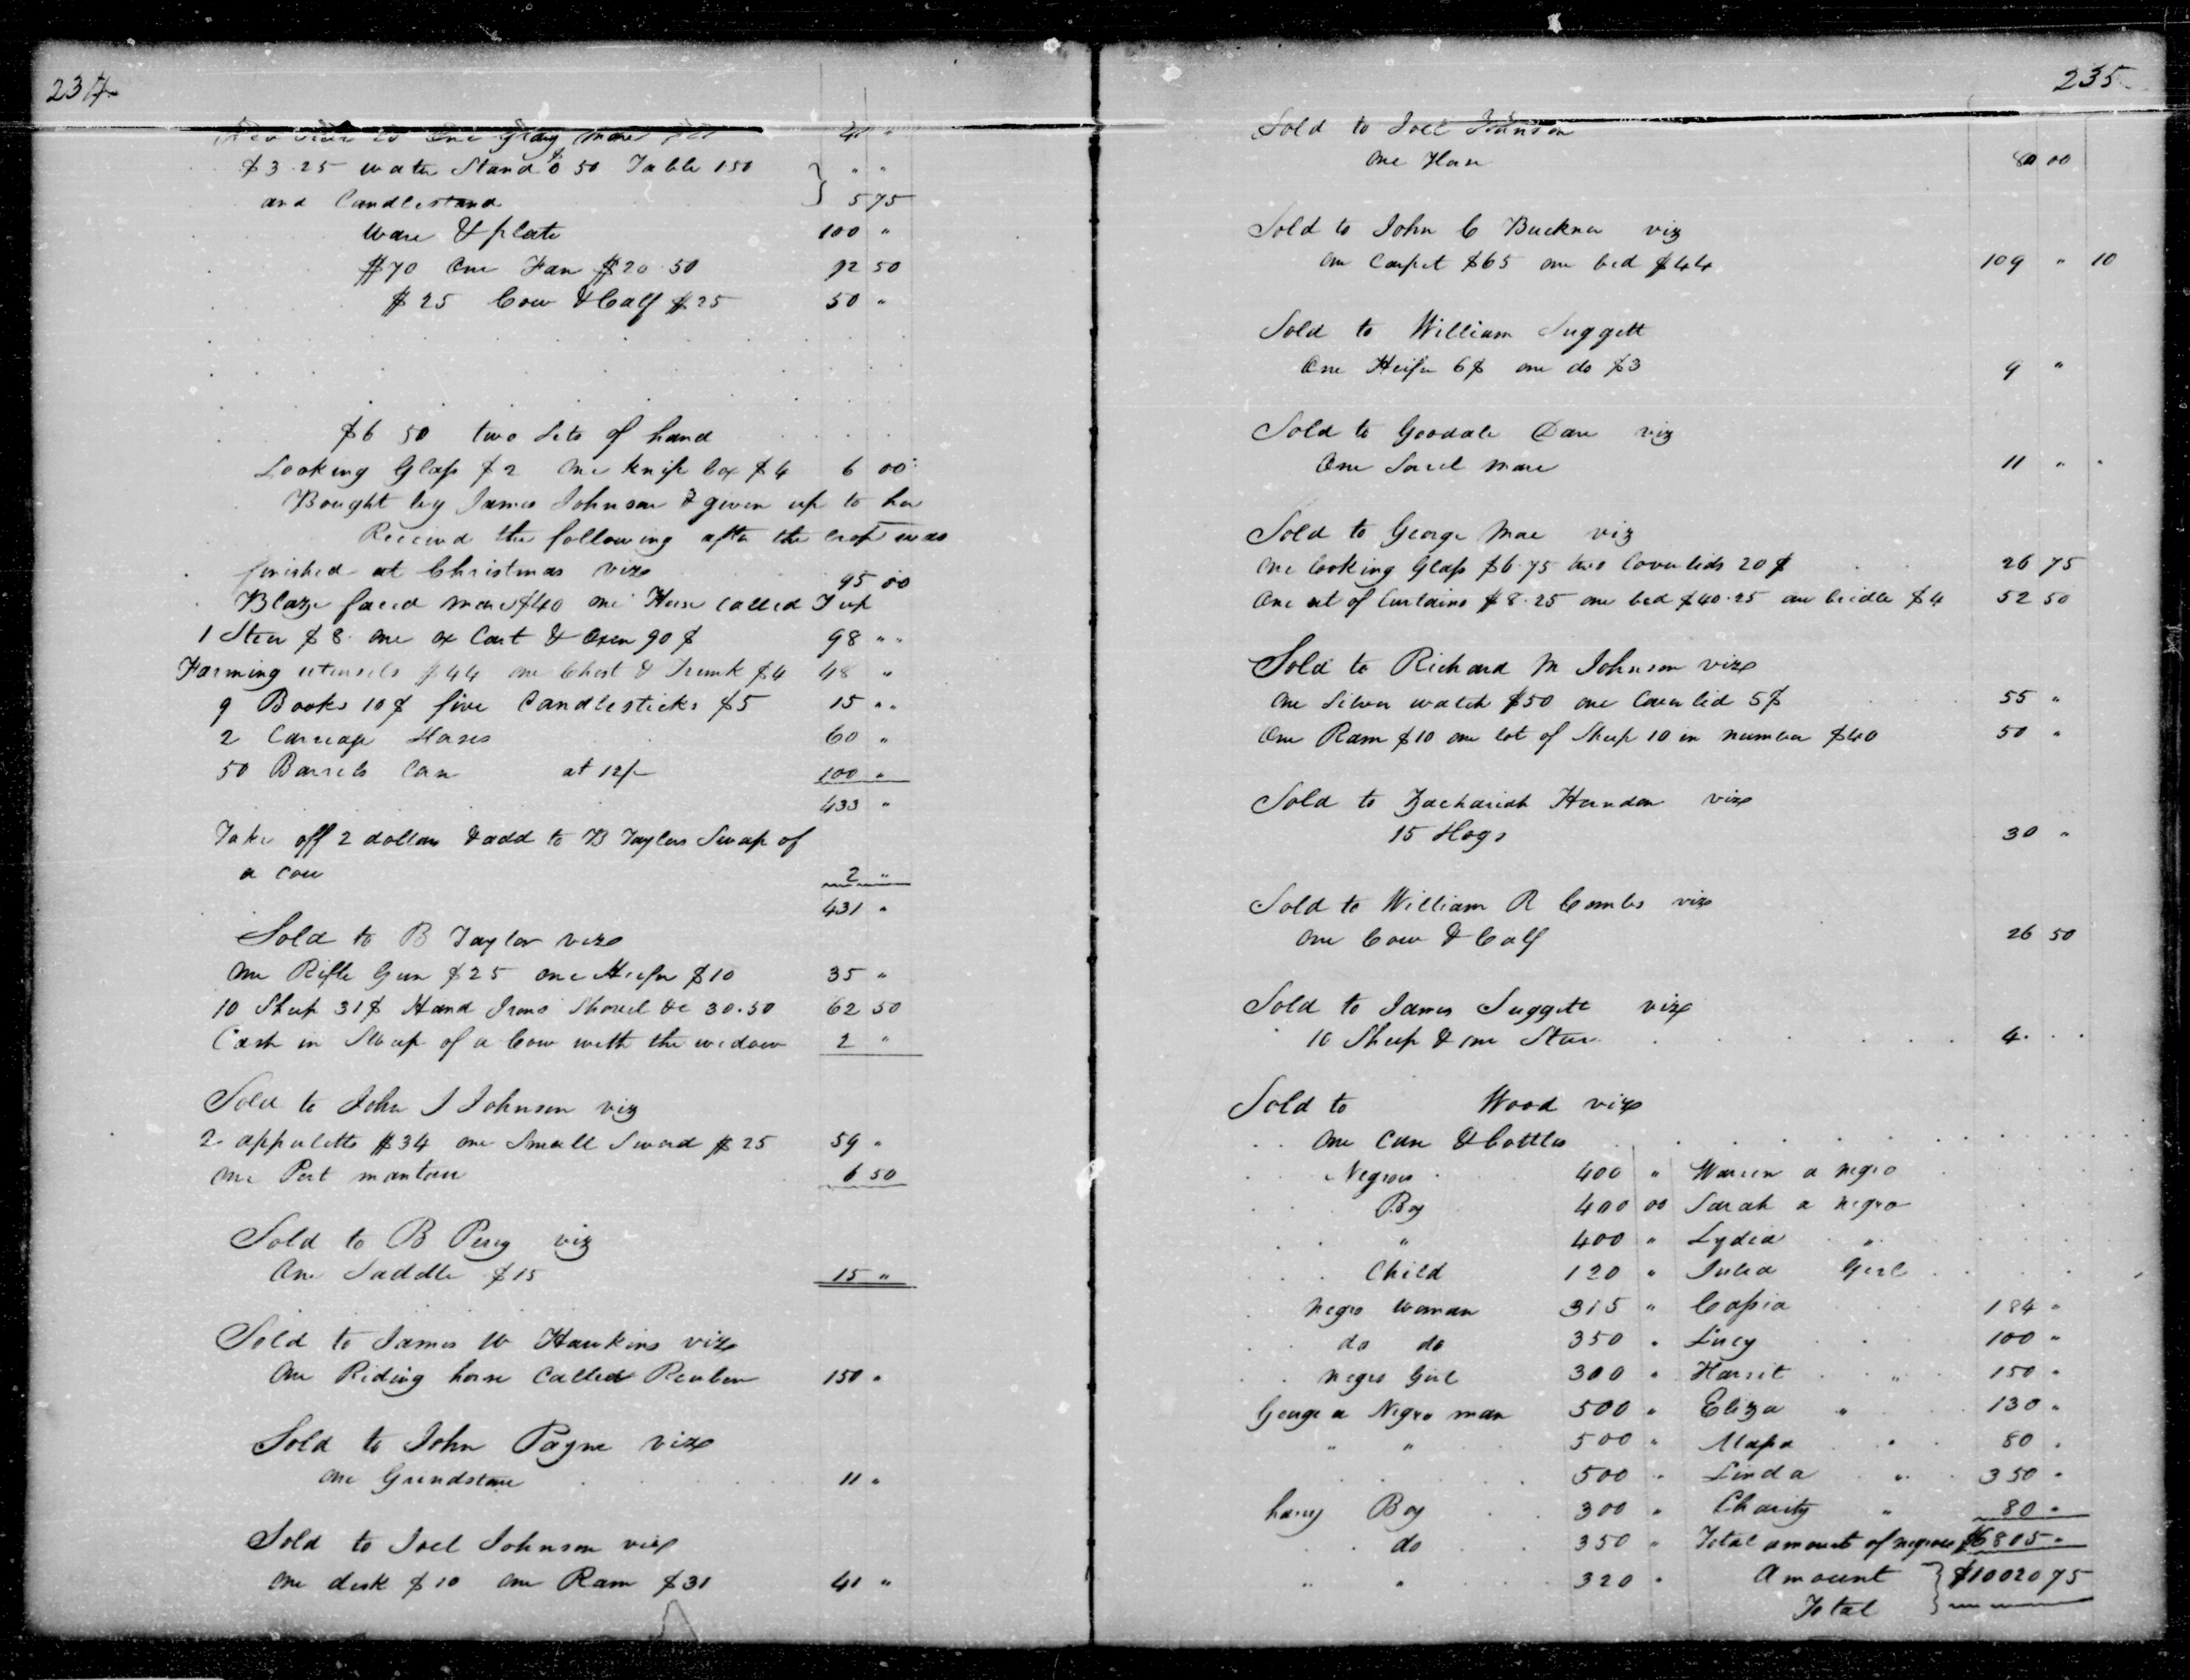 234
one Gray mare 40 "
$3.25 water Stand $ 50 Table 150 " "
and Candlestand 5 75
Ware & plate 100 "
$70 One Fan $20.50 92 50
$25 Cow & Calf $25 50 "
$6 50 two Sets of hand
Looking Glass $2 one knife box $4 6 00
Bought by James Johnson & given up to her
Received the following after the crop was
finished at Christmas viz 95 00
Blaze faced mare $40 one Horse called Jup
1 Steer $8 one ox Cart & Oxen 90$ 98 "
Farming utensils $44 one Chest & Trunk $4 48 "
9 Books 10$ five Candlesticks $5 15 "
2 Carriage Horses 60 "
50 Barrels Corn at 12/- 100 "
433 "
Take off 2 dollars & add to B Taylors Swap of
a Cow 2 "
431 "
Sold to B Taylor viz
One Rifle Gun $25 one Heifer $10 35 "
10 Sheep 31$ Hand Irons Shovel &c 30.50 62 50
Cash in Swap of a Cow with the widow 2 "
Sold to John J Johnson viz
2 appuletts $34 one Small Sword $25 59 "
One Port mantau 6 50
Sold to B Percy viz
One Saddle $15 15 "
Sold to James W Hawkins viz
One Riding horse Called Reuben 150 "
Sold to John Payne viz
One Grindstone 11 "
Sold to Joel Johnson viz
one desk $10 one Ram $31 41 "
235
Sold to Joel Johnson
One Horse 80 00
Sold to John C Buckner viz
One Carpet $65 one bed $44 109 " 10
Sold to William Suggett
One Heifer 6$ one do $3 9 "
Sold to Goodale Dare viz
One Sorrel mare 11 "
Sold to George Mae viz
One looking Glass $6.75 two Coverlids 20$ 26 75
One set of Curtains $8.25 one bed $40.25 one bridle $4 52 50
Sold to Richard M Johnson viz
One Silver watch $50 one Coverlid 5$ 55 "
One Ram $10 one lot of Sheep 10 in number $40 50 "
Sold to Zachariah Herndon viz
15 Hogs 30 "
Sold to William R Combs viz
One Cow & Calf 26 50
Sold to James Suggett viz
10 Sheep & one Steer 4
Sold to Wood viz
One Case & bottles
Negroes 400 " Warren a negro
Boy 400 00 Sarah a negro
" 400 " Lydia "
Child 120 " Julia Girl
negro woman 315 " Cassia 184 "
do do 350 " Lucy 100 "
negro Girl 300 " Harriet " 150 "
George a Negro man 500 " Eliza " 130 "
" " 500 " " 80 "
500 " Linda " 350 "
Boy 300 " Charity " 80 "
do 350 " Total amount of negroes $6805 "
" " 320 " Amount $10020 75
Total